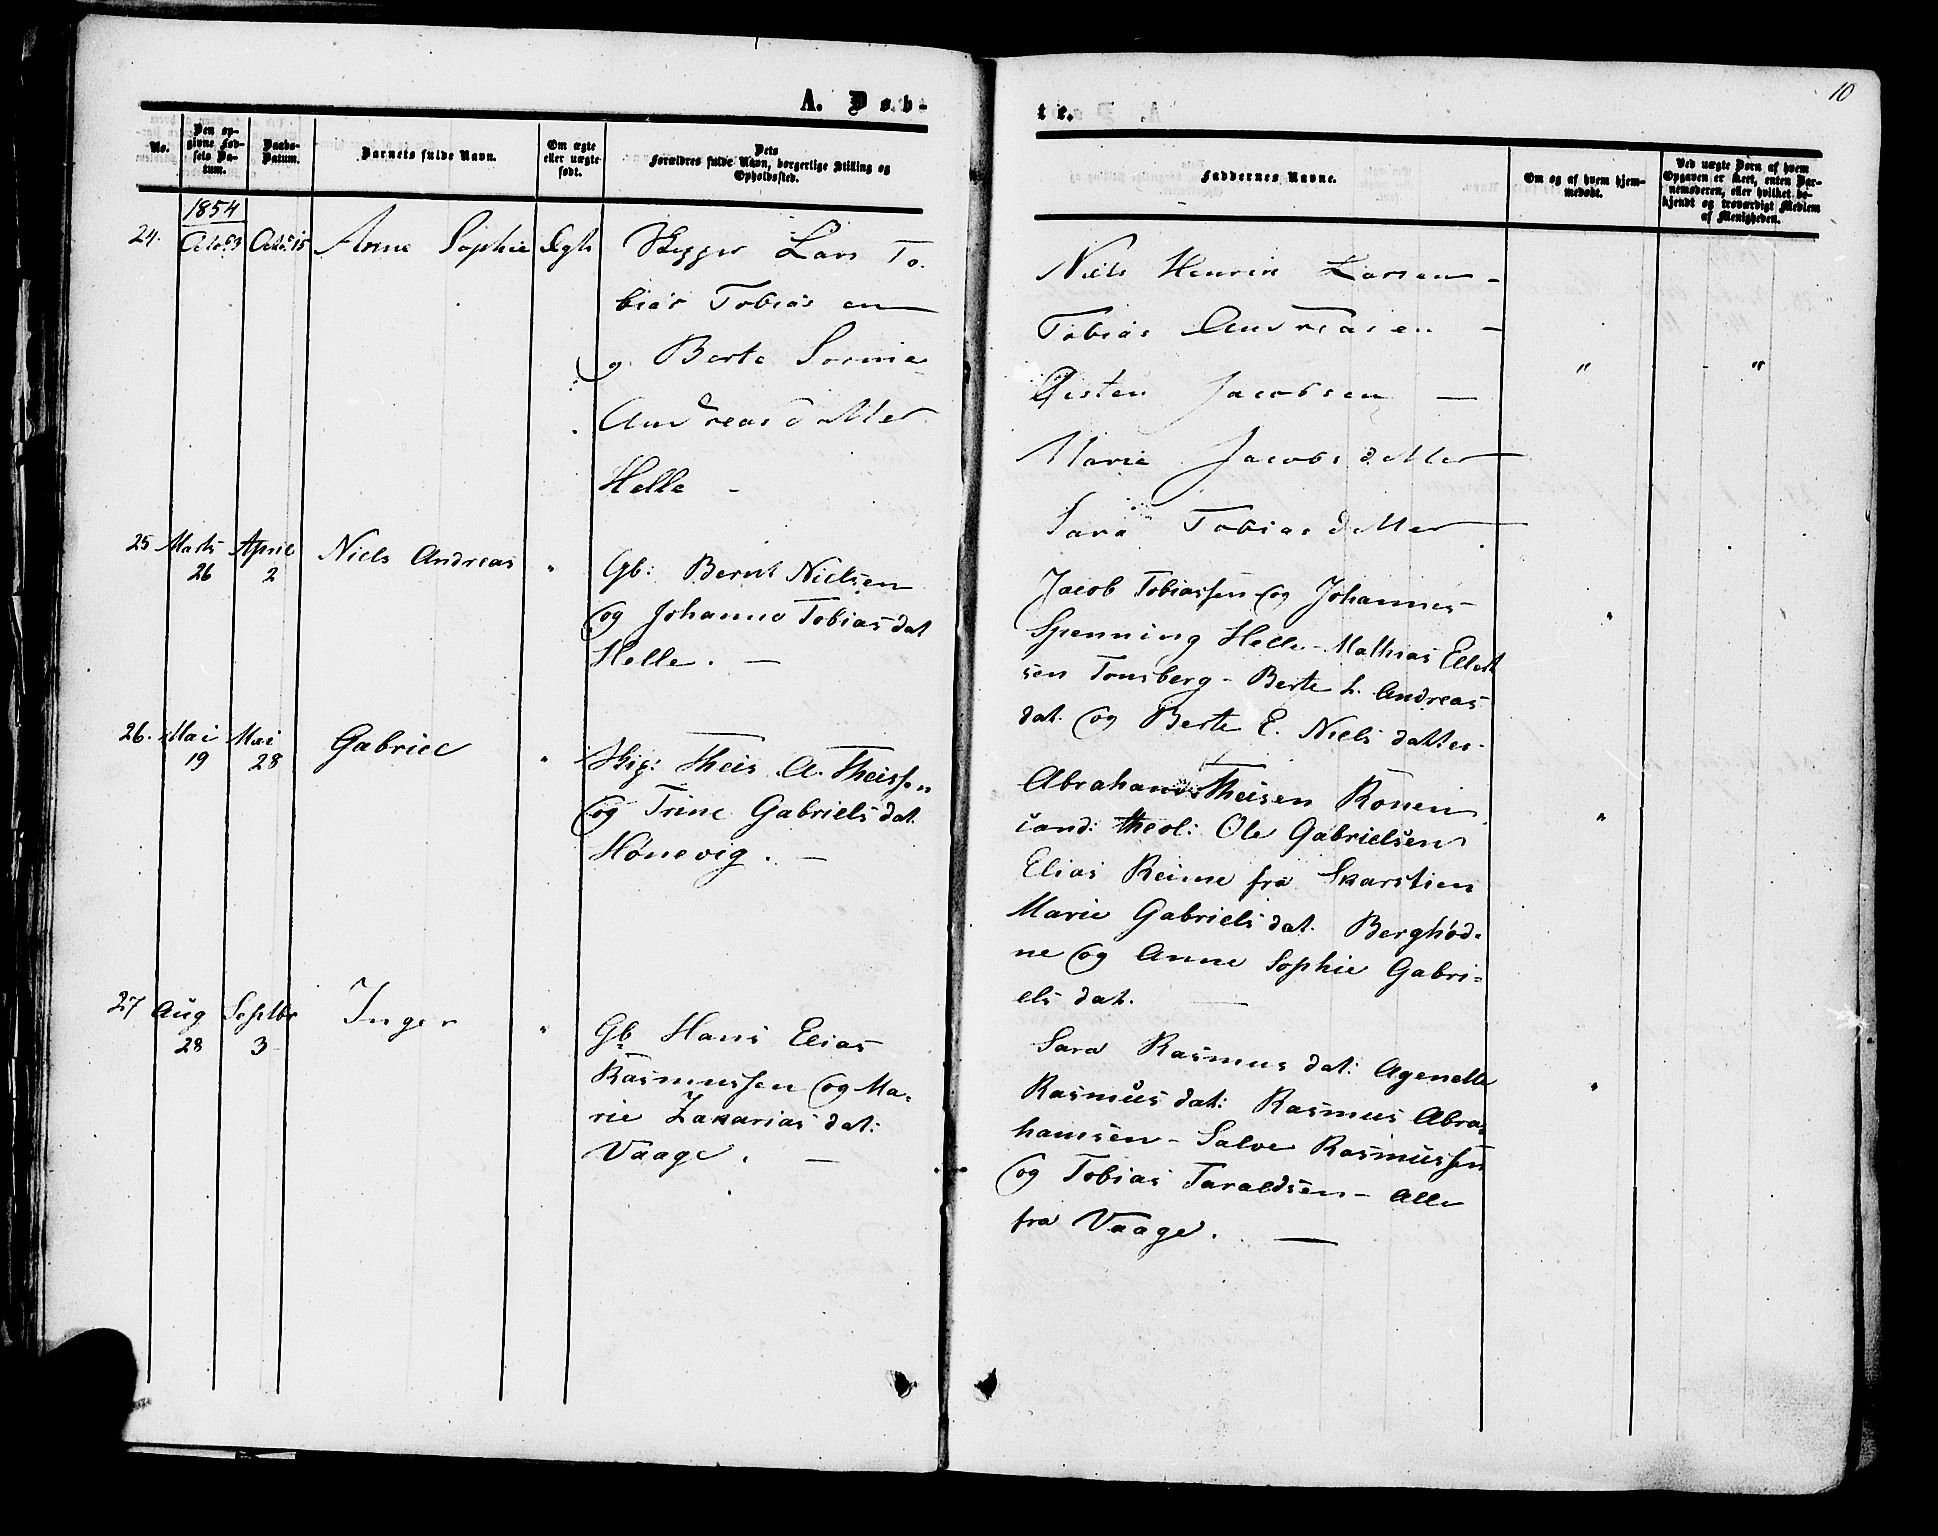 10
A. Døb-
te.
No.
Den op-
givne Fød-
sels Da-
tum.
Daabs-
Datum.
Barnets fulde Navn.
Om ægte
eller uægte
født.
Dets
Forældres fulde Navn, borgerlige Stilling og
Opholdssted.
Faddernes Navne.
Om og af hvem hjem-
medøbt.
Ved uægte Børn af hvem
Opgaven er skeet, enten Bar-
nemoderen, eller hvilket be-
kjendt og troværdigt Medlem
af Menigheden.
1854
24.
15
Anne Sophie
Ægte
Skipper Lars To-
bias Tobiasen
og Berte
Andreasdatter
Helle -
Niels Henrik Larsen -
Tobias Andreasen -
Jacobsen -
Marie Jacobsdatter
Sara Tobiasdatter
"
"
25
Marts
26
April
2
Niels Andreas
"
Gb: Bernt Nielsen
og Johanne Tobiasdat
Helle. -
Jacob Tobiassen og Johannes
Spenning Helle - Mathias Ellert
sen Tonsberg - Berte L. Andreas
dat. og Berte E. Nielsdatter
"
26.
Mai
19
Mai
28
Gabriel
"
Skip: Theis A. Theissen
og Trine Gabrielsdat.
Hønevig. -
Abraham Theisen Rønen
cand: theol: Ole Gabrielsen
Elias Reime fra Skarstien
Marie Gabrielsdat. Berghød-
ne og Anne Sophie Gabri-
elsdat. -
"
27
Aug
28
Septbr
3
Inger
"
Gb. Hans Elias
Rasmussen og Ma-
rie Zakariasdat:
Vaage. -
Sara Rasmusdat: Agenette
Rasmusdat: Rasmus Abra-
hamsen - Salve Rasmussen
og Tobias Taraldsen - alle
fra Vaage. -
"